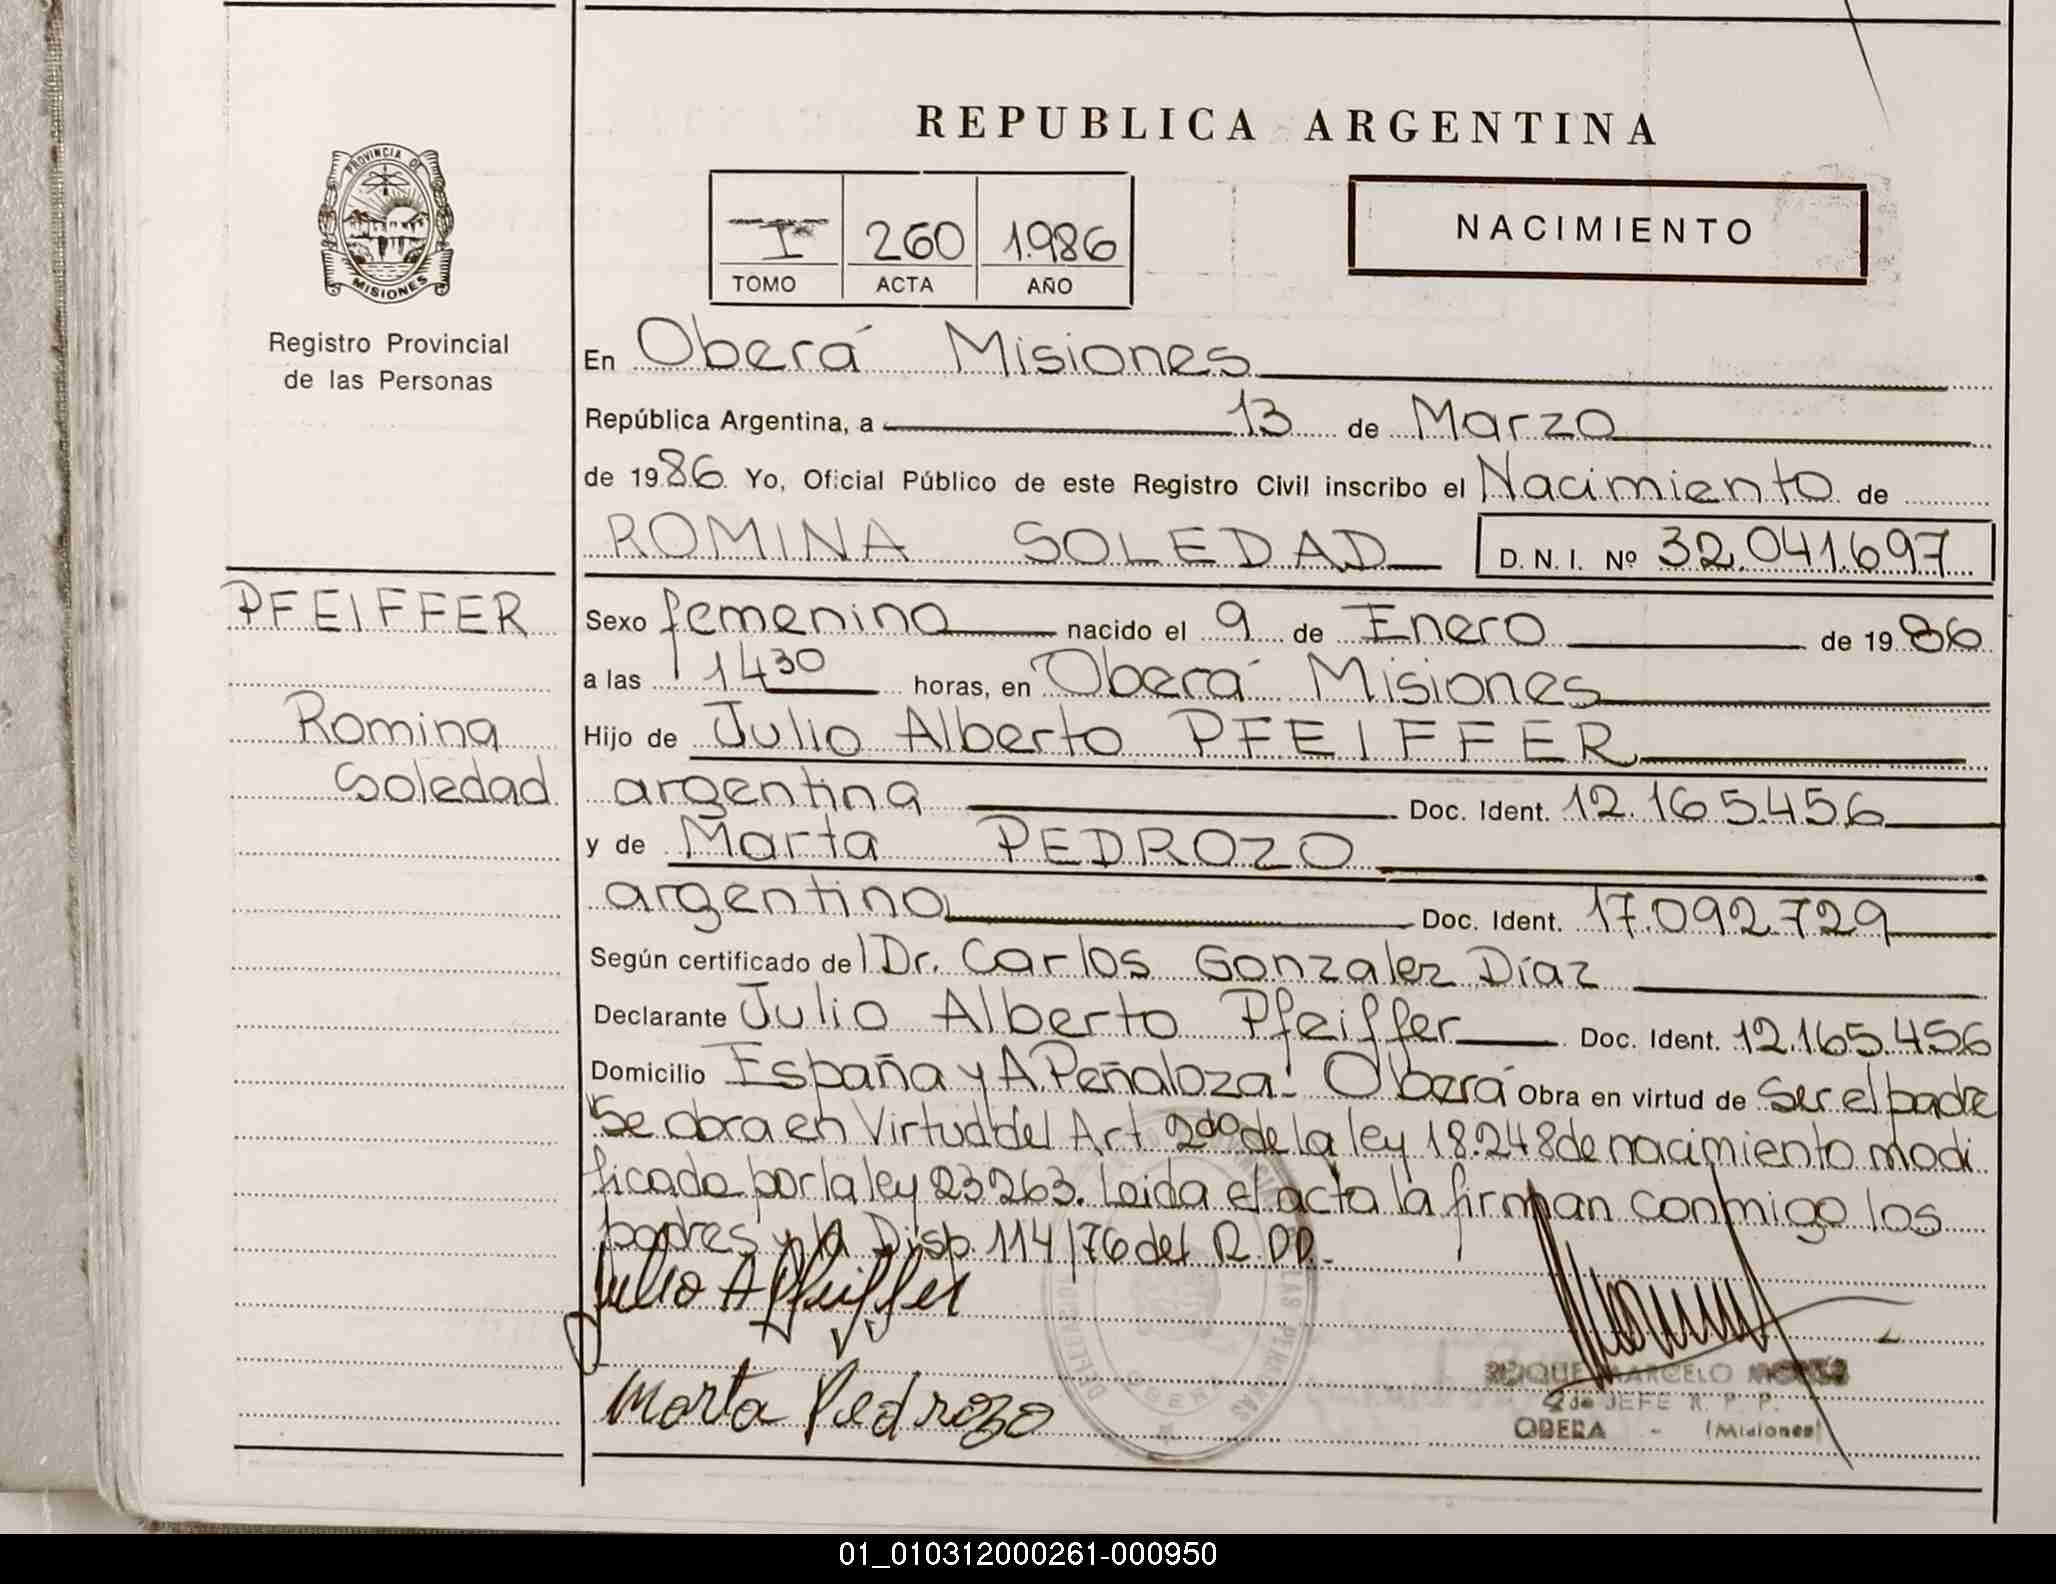 REPUBLICA ARGENTINA
PROVINCIA DE
MISIONES
Registro Provincial
de las Personas
NACIMIENTO
I 260 1986
TOMO ACTA AÑO
En Oberá Misiones
República Argentina, a 13 de Marzo
de 1986 Yo, Oficial Público de este Registro Civil inscribo el Nacimiento de
ROMINA SOLEDAD D. N. I. Nº 32.041.697
PFEIFFER
Romina
Soledad
Sexo femenino nacido el 9 de Enero de 1986
a las 14 30 horas, en Oberá Misiones
Hijo de Julio Alberto PFEIFFER
argentina Doc. Ident. 12.165.456
y de Marta PEDROZO
argentino Doc. Ident. 17.092.729
Según certificado de Dr. Carlos Gonzalez Díaz
Declarante Julio Alberto Pfeiffer Doc. Ident. 12.165.456
Domicilio España y A. Peñaloza. Oberá Obra en virtud de Ser el padre
Se obra en Virtud del Art 2do de la ley 18.248 de nacimiento modi
ficado por la ley 23263. Leida el acta la firman conmigo los
padres y la Disp. 114/76 del R.P.P.
Julio A Pfeiffer
Marta Pedrozo
ROQUE MARCELO
2do JEFE R. P. P.
OBERA - (Misiones)
OBERA
01_010312000261-000950